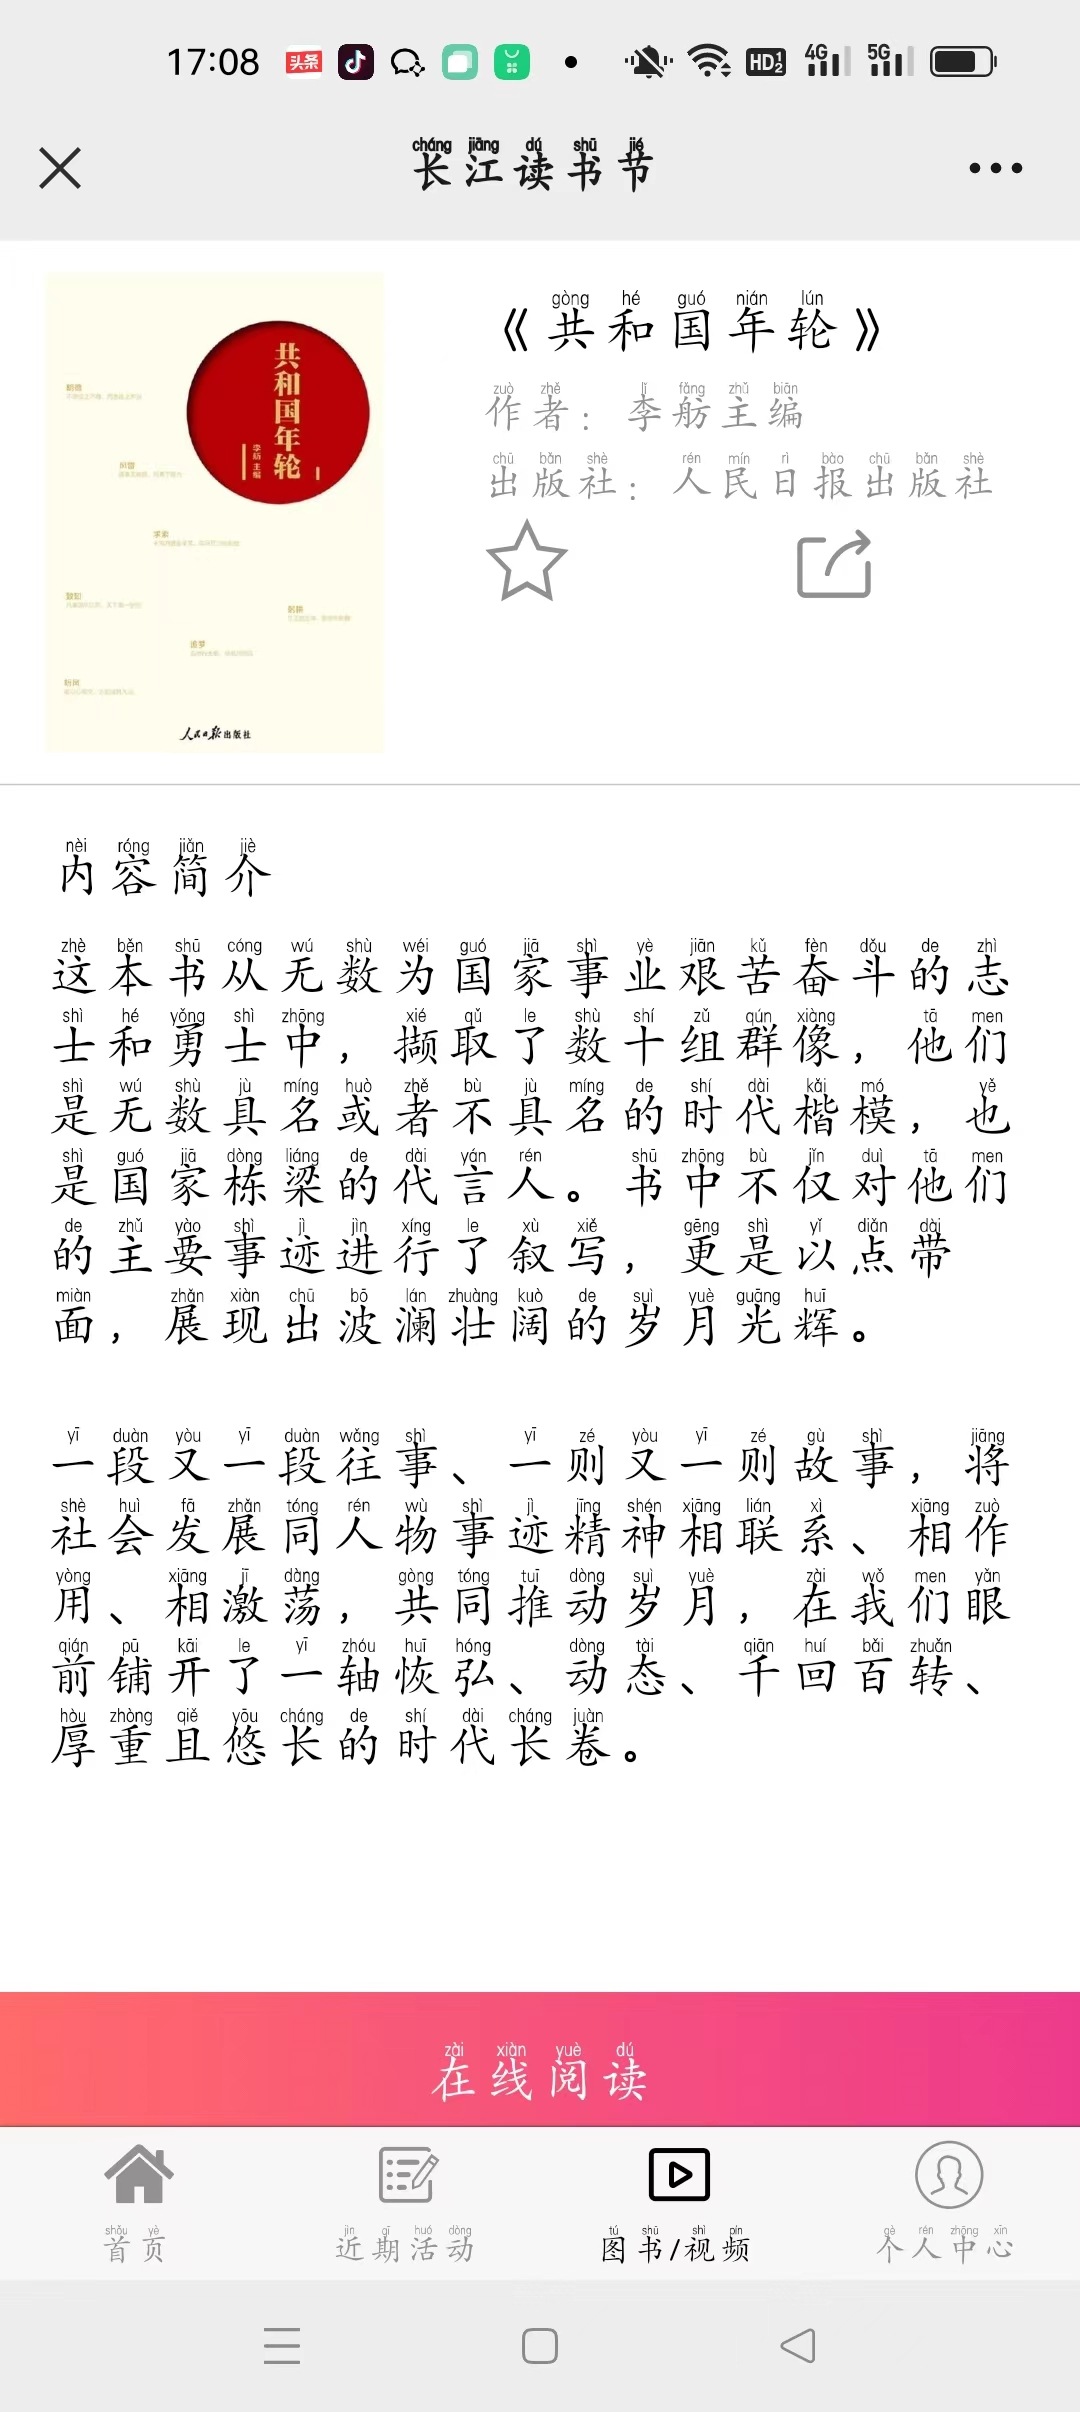 17:08
头条
HD 1 2
4G
5G
cháng jiāng dú shū jié
长江读书节
共和国年轮
李舫 主编
人民日报出版社
gòng hé guó nián lún
《共和国年轮》
zuò zhě lǐ fǎng zhǔ biān
作者：李舫主编
chū bǎn shè rén mín rì bào chū bǎn shè
出版社：人民日报出版社
nèi róng jiǎn jiè
内容简介
zhè běn shū cóng wú shù wéi guó jiā shì yè jiān kǔ fèn dǒu de zhì
这本书从无数为国家事业艰苦奋斗的志
shì hé yǒng shì zhōng xié qǔ le shù shí zǔ qún xiàng tā men
士和勇士中，撷取了数十组群像，他们
shì wú shù jù míng huò zhě bù jù míng de shí dài kǎi mó yě
是无数具名或者不具名的时代楷模，也
shì guó jiā dòng liáng de dài yán rén shū zhōng bù jǐn duì tā men
是国家栋梁的代言人。书中不仅对他们
de zhǔ yào shì jì jìn xíng le xù xiě gēng shì yǐ diǎn dài
的主要事迹进行了叙写，更是以点带
miàn zhǎn xiàn chū bō lán zhuàng kuò de suì yuè guāng huī
面，展现出波澜壮阔的岁月光辉。
yī duàn yòu yī duàn wǎng shì yī zé yòu yī zé gù shì jiāng
一段又一段往事、一则又一则故事，将
shè huì fā zhǎn tóng rén wù shì jì jīng shén xiāng lián xì xiāng zuò
社会发展同人物事迹精神相联系、相作
yòng xiāng jī dàng gòng tóng tuī dòng suì yuè zài wǒ men yǎn
用、相激荡，共同推动岁月，在我们眼
qián pū kāi le yī zhóu huī hóng dòng tài qiān huí bǎi zhuǎn
前铺开了一轴恢弘、动态、千回百转、
hòu zhòng qiě yōu cháng de shí dài cháng juàn
厚重且悠长的时代长卷。
zài xiàn yuè dú
在线阅读
shǒu yè
首页
jìn qī huó dòng
近期活动
tú shū shì pín
图书/视频
gè rén zhōng xīn
个人中心